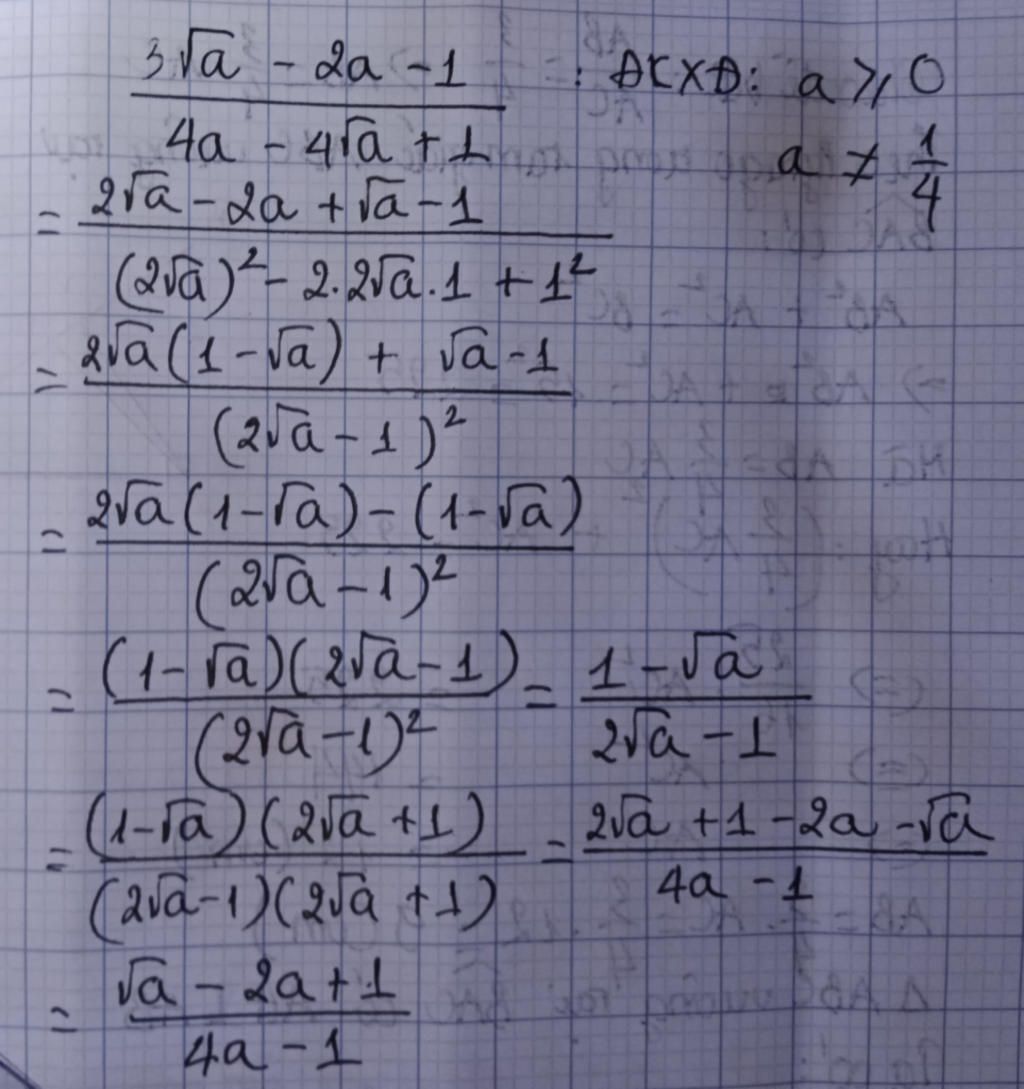 (3√a - 2a - 1)/(4a - 4√a + 1) : ĐKXĐ: a ⩾ 0
a ≠ 1/4
= (2√a - 2a + √a - 1)/((2√a)² - 2.2√a.1 + 1²)
= (2√a(1 - √a) + √a - 1)/((2√a - 1)²)
= (2√a(1 - √a) - (1 - √a))/((2√a - 1)²)
= ((1 - √a)(2√a - 1))/((2√a - 1)²) = (1 - √a)/(2√a - 1)
= ((1 - √a)(2√a + 1))/((2√a - 1)(2√a + 1)) = (2√a + 1 - 2a - √a)/(4a - 1)
= (√a - 2a + 1)/(4a - 1)